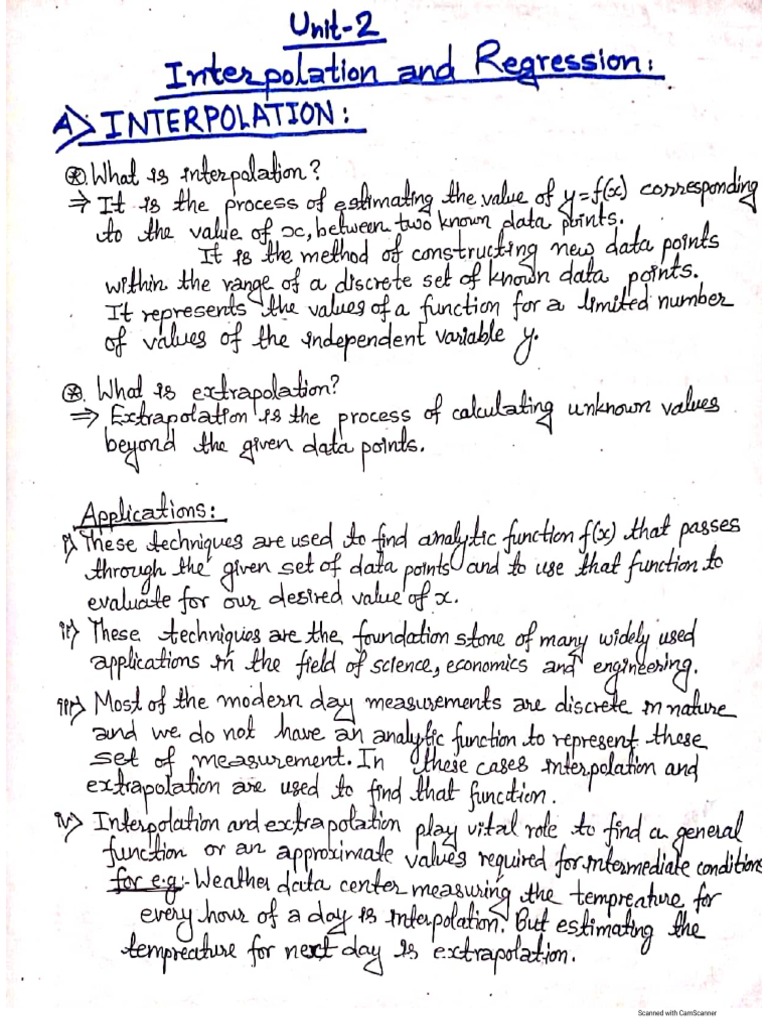 Unit-2
Interpolation and Regression:
A) INTERPOLATION:
⊛ What is interpolation?
⇒ It is the process of estimating the value of y=f(x) corresponding
to the value of x, between two known data points.
It is the method of constructing new data points
within the range of a discrete set of known data points.
It represents the values of a function for a limited number
of values of the independent variable y.
⊛. What is extrapolation?
⇒ Extrapolation is the process of calculating unknown values
beyond the given data points.
Applications:
i) These techniques are used to find analytic function f(x) that passes
through the given set of data points and to use that function to
evaluate for our desired value of x.
ii) These techniques are the foundation stone of many widely used
applications in the field of science, economics and engineering.
iii) Most of the modern day measurements are discrete in nature
and we do not have an analytic function to represent these
set of measurement. In these cases interpolation and
extrapolation are used to find that function.
iv) Interpolation and extrapolation play vital role to find a general
function or an approximate values required for intermediate conditions
for e.g:- Weather data center measuring the tempreature for
every hour of a day is interpolation. But estimating the
tempreature for next day is extrapolation.
Scanned with CamScanner